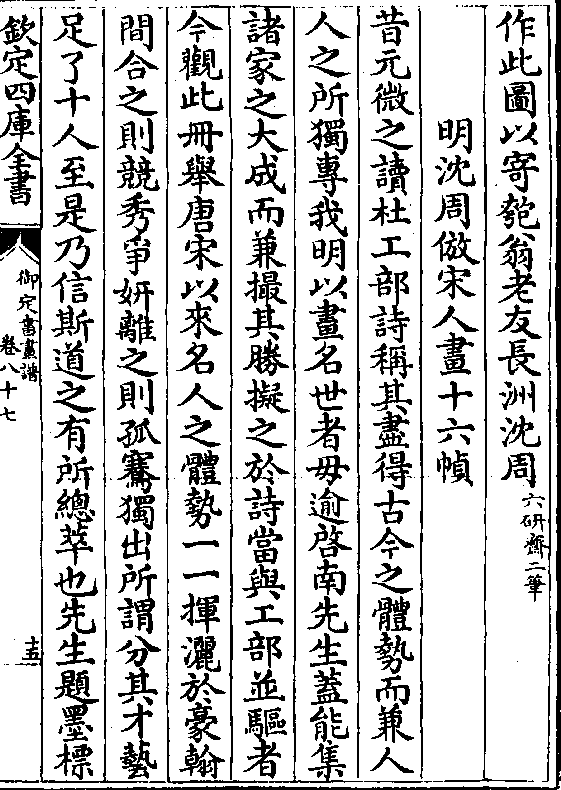 作此圖以寄匏翁老友長洲沈周六研齋二筆
明沈周倣宋人畫十六幀
昔元微之讀杜工部詩稱其盡得古今之體勢而兼人
人之所獨專我明以畫名世者毋逾啓南先生蓋能集
諸家之大成而兼撮其勝擬之於詩當與工部並驅者
今觀此冊舉唐宋以來名人之體勢一一揮灑於豪翰
間合之則競秀爭妍離之則孤騫獨出所謂分其才藝
足了十人至是乃信斯道之有所總萃也先生題墨標
欽定四庫全書
御定書畫譜
卷八十七
十五